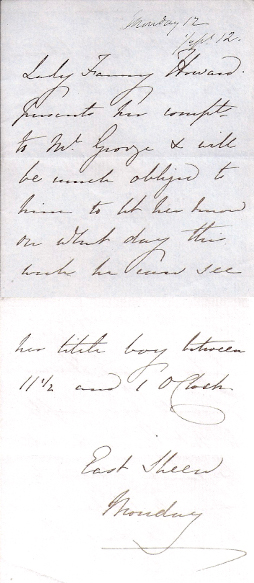 Monday 12
Sept 12.
Lady Fanny Howard
presents her compts
to Mr. George & will
be much obliged to
him to let her know
on what day this
week he can see
her little boy between
11 1/2 and 1 O'Clock.
East Sheen
Monday